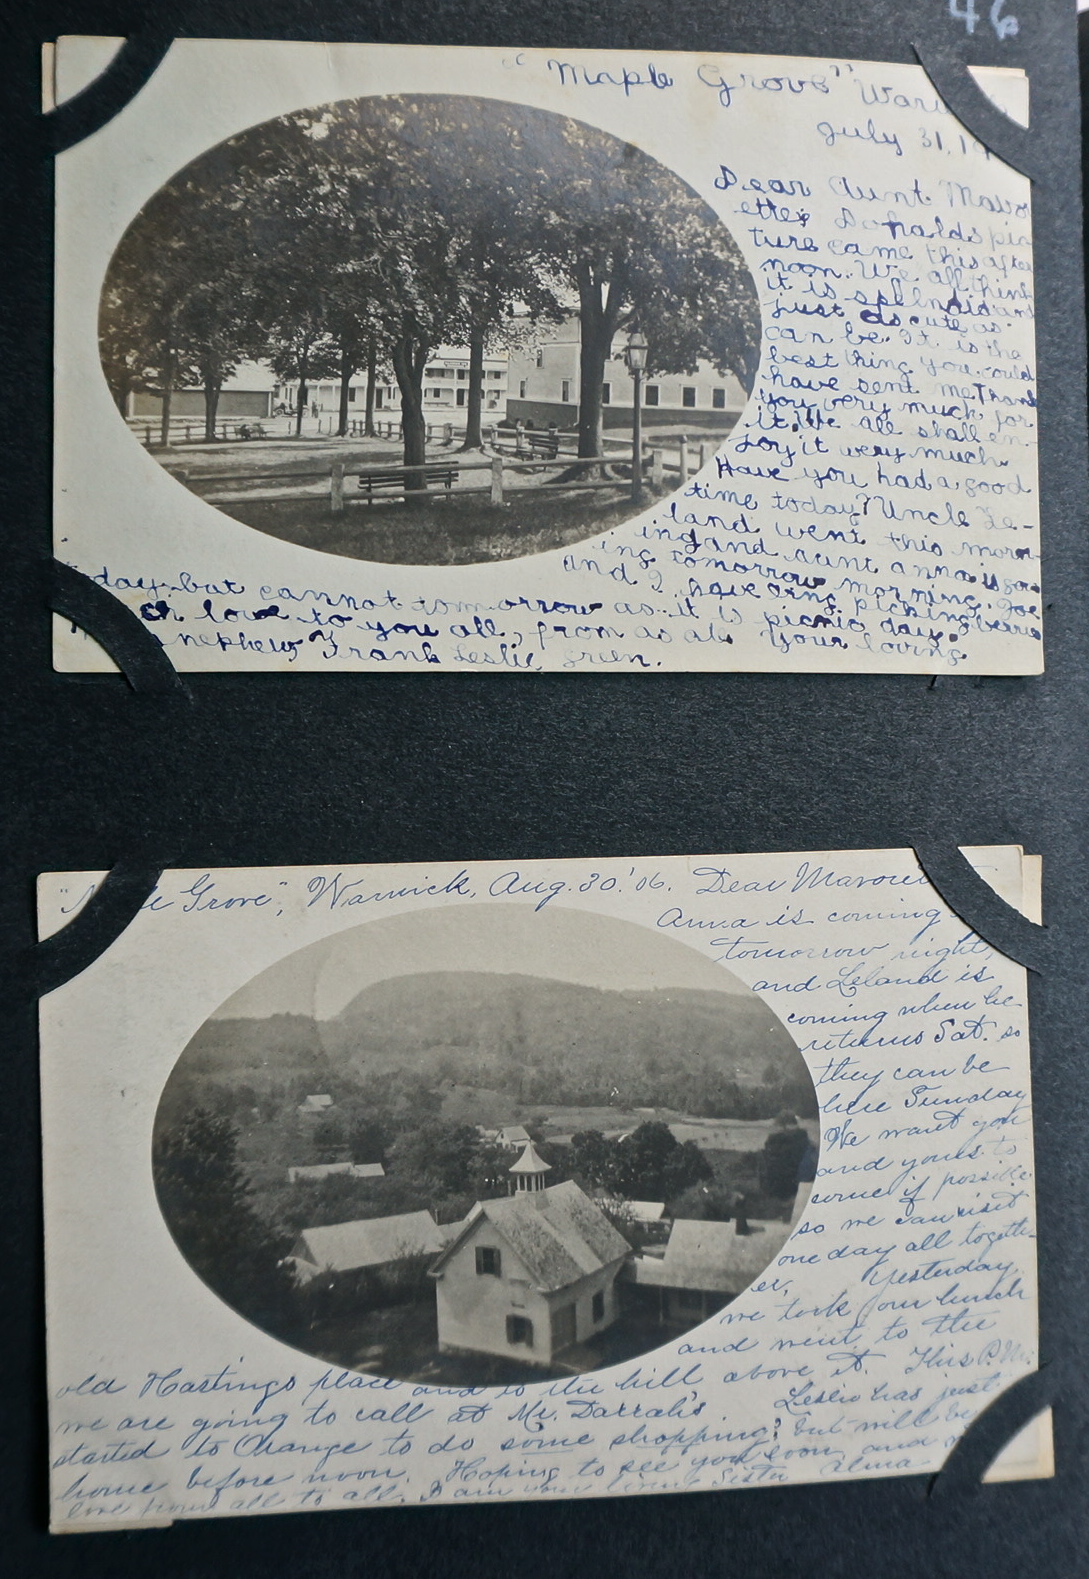 46
"Maple Grove"
July 31, 1
Dear Aunt Mavor
ette; Donalds pic
ture came this after
noon. We all think
it is splendid and
just as cute as
can be. It is the
best thing you could
have sent me. Thank
you very much for
it. We all shall en-
joy it very much.
Have you had a good
time today? Uncle Le-
land went this morn-
ing and aunt anna is go-
ing tomorrow morning. Joe
and I have ing picking berries
day but cannot tomorrow as it is picnic day.
ch love to you all, from as als Your loving
nephew, Frank Leslie Green.
e Grove", Warwick, Aug. 30.' 06. Dear Mavoret
Anna is coming
tomorrow night,
and Leland is
coming when he
returns Sat. so
they can be
here Sunday
We want you
and yours to
come if possible
so we can visit
one day all togeth-
er, Yesterday
we took our lunch
and went to the
old Hastings place and to the hill above it. This P.M.
we are going to call at Mr. Darrah's Leslie has just
started to Orange to do some shopping, but will be
home before noon. Hoping to see you soon, and
love from all to all. I am your loving Sister Alma